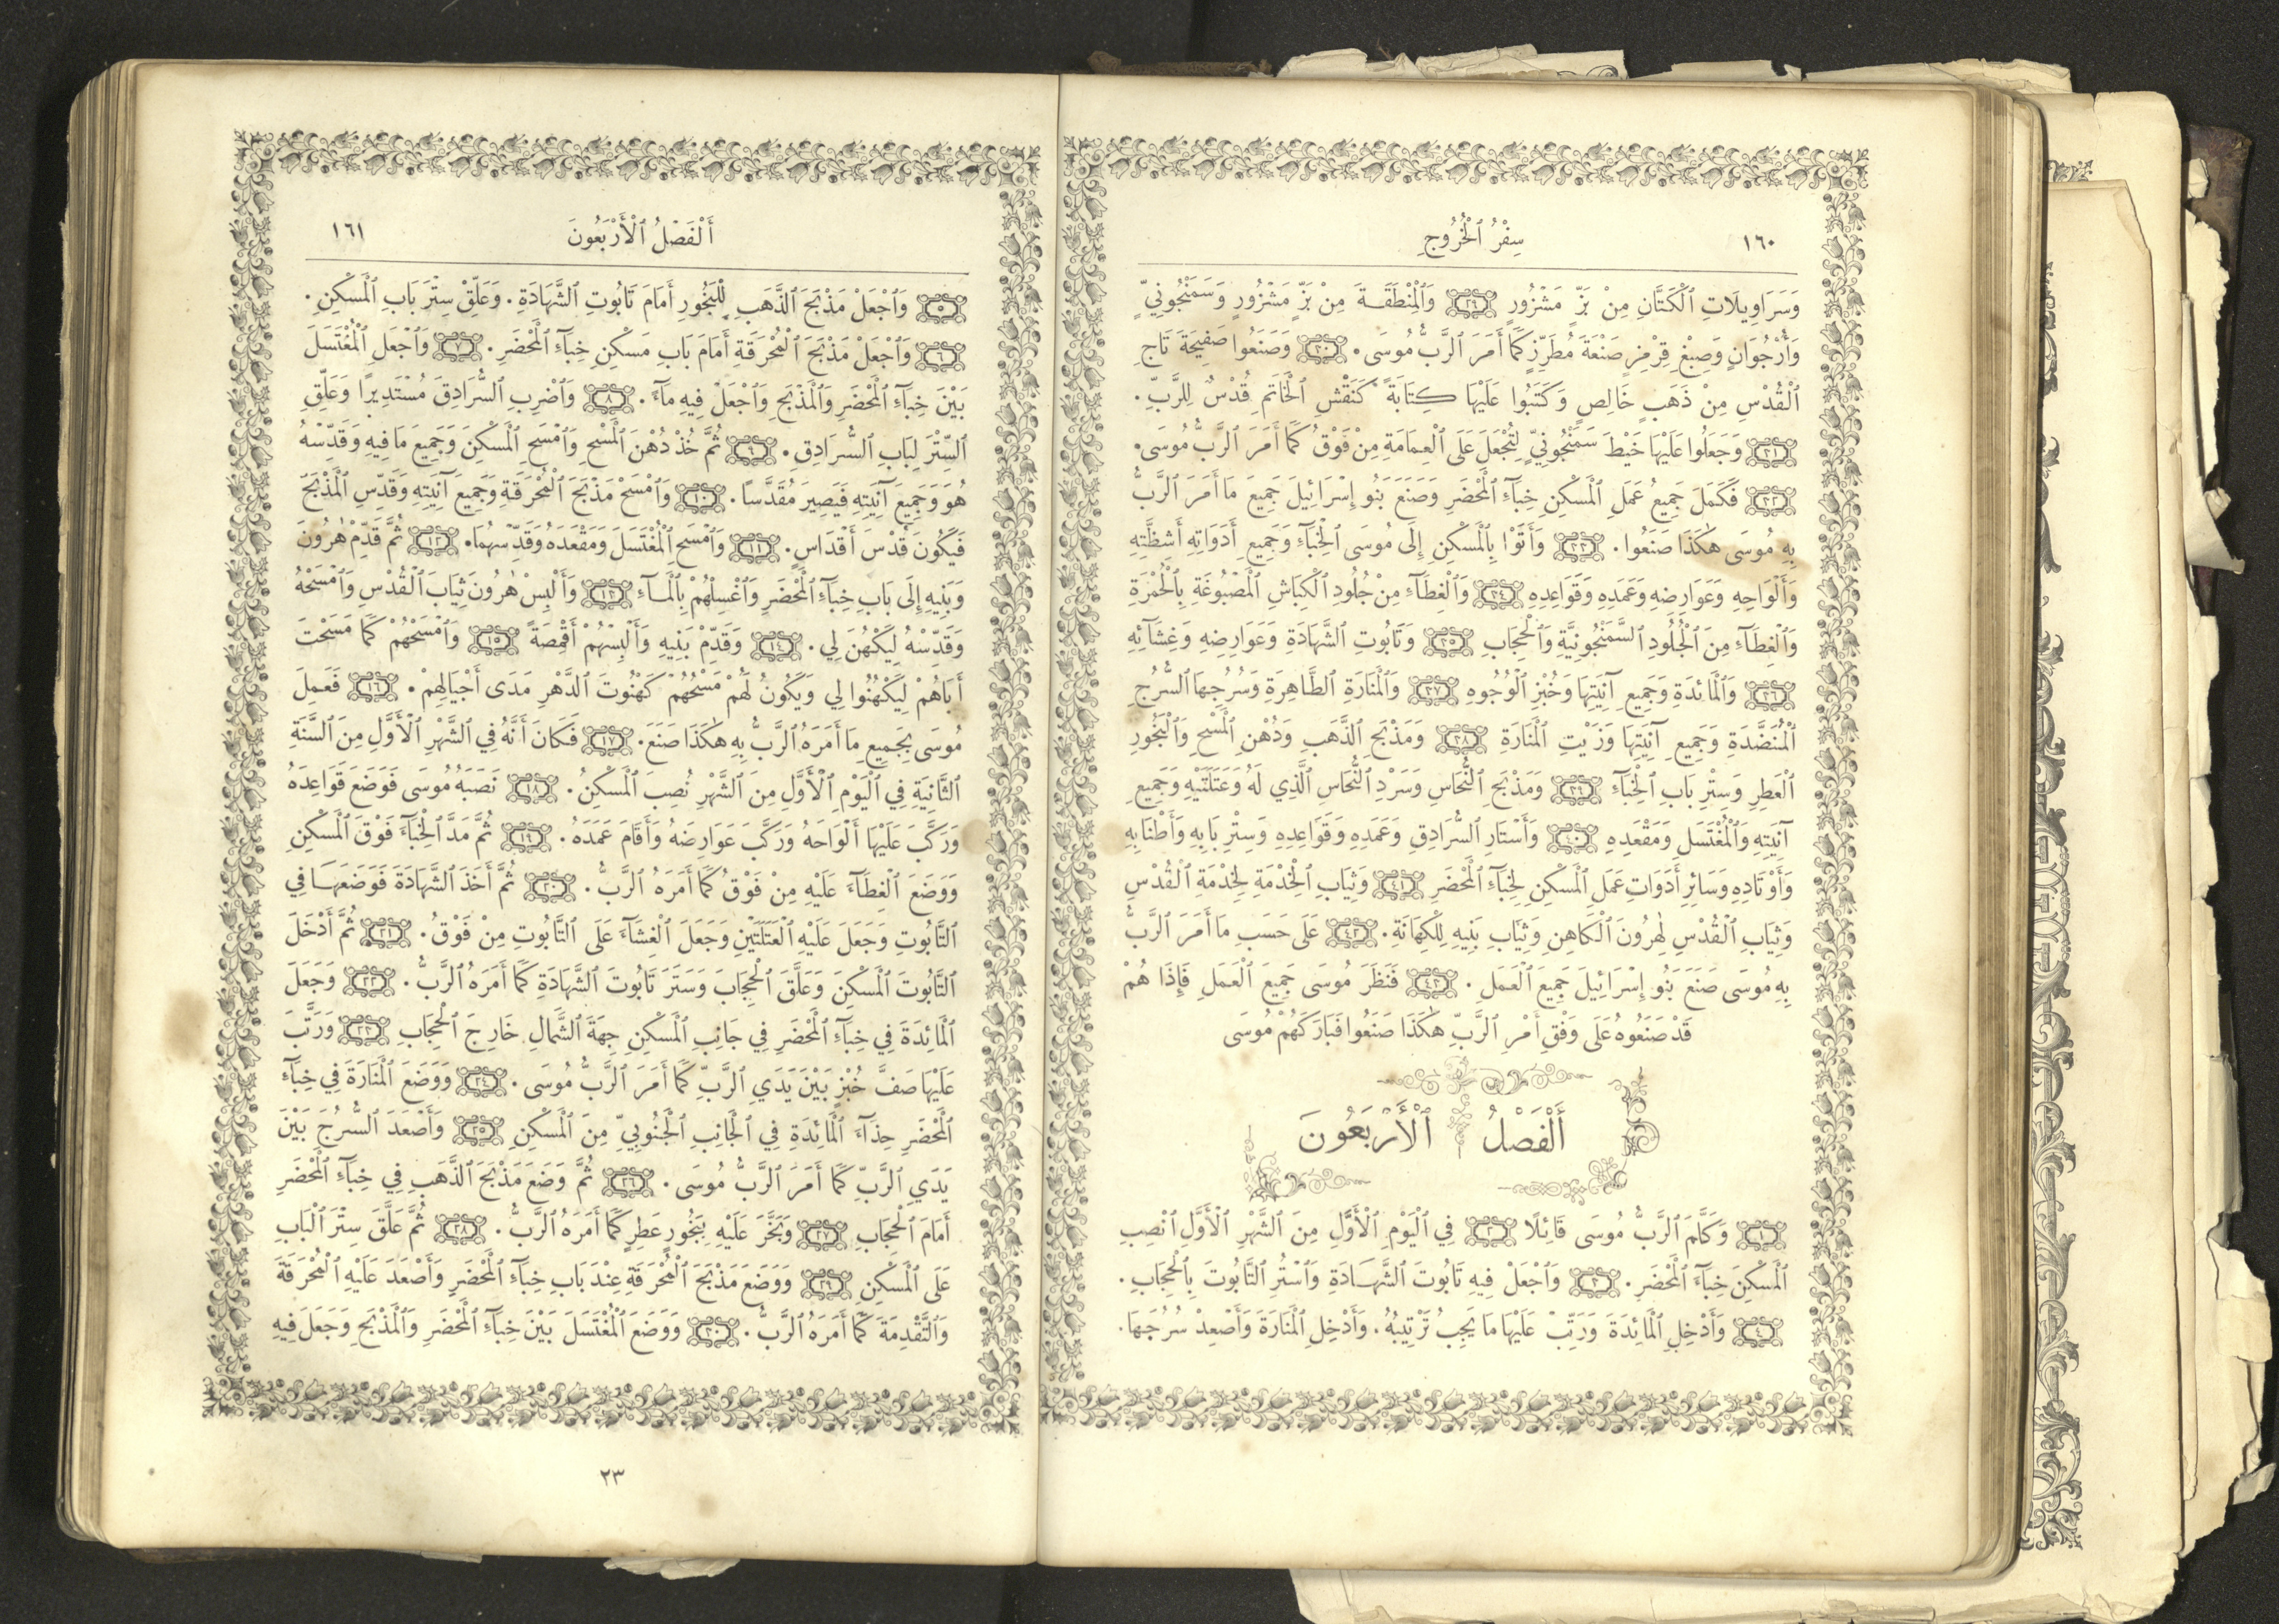 ١٦٠
سِفْرُ ٱلْخُرُوجِ
وَسَرَاوِيلَاتِ ٱلْكَتَّانِ مِنْ بَزٍّ مَشْزُورٍ ٢٩ وَٱلْمِنْطَقَةَ مِنْ بَزٍّ مَشْزُورٍ وَسَمَنْجُونِيٍّ
وَأُرْجُوَانٍ وَصِبْغِ قِرْمِزٍ صَنْعَةَ مُطَرِّزٍ كَمَا أَمَرَ ٱلرَّبُّ مُوسَى. ٣٠ وَصَنَعُوا صَفِيحَةَ تَاجِ
ٱلْقُدْسِ مِنْ ذَهَبٍ خَالِصٍ وَكَتَبُوا عَلَيْهَا كِتَابَةً كَنَقْشِ ٱلْخَاتَمِ قُدْسٌ لِلرَّبِّ.
٣١ وَجَعَلُوا عَلَيْهَا خَيْطَ سَمَنْجُونِيٍّ لِتُجْعَلَ عَلَى ٱلْعِمَامَةِ مِنْ فَوْقُ كَمَا أَمَرَ ٱلرَّبُّ مُوسَى.
٣٢ فَكَمَلَ جَمِيعُ عَمَلِ ٱلْمَسْكِنِ خِبَآءِ ٱلْمَحْضَرِ وَصَنَعَ بَنُو إِسْرَائِيلَ جَمِيعَ مَا أَمَرَ ٱلرَّبُّ
بِهِ مُوسَى هٰكَذَا صَنَعُوا. ٣٣ وَأَتَوْا بِٱلْمَسْكِنِ إِلَى مُوسَى ٱلْخِبَآءِ وَجَمِيعِ أَدَوَاتِهِ أَشِظَّتِهِ
وَأَلْوَاحِهِ وَعَوَارِضِهِ وَعَمَدِهِ وَقَوَاعِدِهِ ٣٤ وَٱلْغِطَآءِ مِنْ جُلُودِ ٱلْكِبَاشِ ٱلْمَصْبُوغَةِ بِٱلْحُمْرَةِ
وَٱلْغِطَآءِ مِنَ ٱلْجُلُودِ ٱلسَّمَنْجُونِيَّةِ وَٱلْحِجَابِ ٣٥ وَتَابُوتِ ٱلشَّهَادَةِ وَعَوَارِضِهِ وَغِشَآئِهِ
٣٦ وَٱلْمَائِدَةِ وَجَمِيعِ آنِيَتِهَا وَخُبْزِ ٱلْوُجُوهِ ٣٧ وَٱلْمَنَارَةِ ٱلطَّاهِرَةِ وَسُرُجِهَا ٱلسُّرُجِ
ٱلْمُنَضَّدَةِ وَجَمِيعِ آنِيَتِهَا وَزَيْتِ ٱلْمَنَارَةِ ٣٨ وَمَذْبَحِ ٱلذَّهَبِ وَدُهْنِ ٱلْمَسْحِ وَٱلْبَخُورِ
ٱلْعَطِرِ وَسِتْرِ بَابِ ٱلْخِبَآءِ ٣٩ وَمَذْبَحِ ٱلنُّحَاسِ وَسَرْدِ ٱلنُّحَاسِ ٱلَّذِي لَهُ وَعَتَلَتَيْهِ وَجَمِيعِ
آنِيَتِهِ وَٱلْمُغْتَسَلِ وَمَقْعَدِهِ ٤٠ وَأَسْتَارِ ٱلسُّرَادِقِ وَعَمَدِهِ وَقَوَاعِدِهِ وَسِتْرِ بَابِهِ وَأَطْنَابِهِ
وَأَوْتَادِهِ وَسَائِرِ أَدَوَاتِ عَمَلِ ٱلْمَسْكِنِ لِخِبَآءِ ٱلْمَحْضَرِ ٤١ وَثِيَابِ ٱلْخِدْمَةِ لِخِدْمَةِ ٱلْقُدْسِ
وَثِيَابِ ٱلْقُدْسِ لِهٰرُونَ ٱلْكَاهِنِ وَثِيَابِ بَنِيهِ لِلْكِهَانَةِ. ٤٢ عَلَى حَسَبِ مَا أَمَرَ ٱلرَّبُّ
بِهِ مُوسَى صَنَعَ بَنُو إِسْرَائِيلَ جَمِيعَ ٱلْعَمَلِ. ٤٣ فَنَظَرَ مُوسَى جَمِيعَ ٱلْعَمَلِ فَإِذَا هُمْ
قَدْ صَنَعُوهُ عَلَى وَفْقِ أَمْرِ ٱلرَّبِّ هٰكَذَا صَنَعُوا فَبَارَكَهُمْ مُوسَى
أَلْفَصْلُ ٱلْأَرْبَعُونَ
١ وَكَلَّمَ ٱلرَّبُّ مُوسَى قَائِلًا ٢ فِي ٱلْيَوْمِ ٱلْأَوَّلِ مِنَ ٱلشَّهْرِ ٱلْأَوَّلِ ٱنْصِبِ
ٱلْمَسْكِنَ خِبَآءَ ٱلْمَحْضَرِ. ٣ وَٱجْعَلْ فِيهِ تَابُوتَ ٱلشَّهَادَةِ وَٱسْتُرِ ٱلتَّابُوتَ بِٱلْحِجَابِ.
٤ وَأَدْخِلِ ٱلْمَائِدَةَ وَرَتِّبْ عَلَيْهَا مَا يَجِبُ تَرْتِيبُهُ. وَأَدْخِلِ ٱلْمَنَارَةَ وَأَصْعِدْ سُرُجَهَا.
أَلْفَصْلُ ٱلْأَرْبَعُونَ
١٦١
٥ وَٱجْعَلْ مَذْبَحَ ٱلذَّهَبِ لِلْبَخُورِ أَمَامَ تَابُوتِ ٱلشَّهَادَةِ. وَعَلِّقْ سِتْرَ بَابِ ٱلْمَسْكِنِ.
٦ وَٱجْعَلْ مَذْبَحَ ٱلْمُحْرَقَةِ أَمَامَ بَابِ مَسْكِنِ خِبَآءِ ٱلْمَحْضَرِ. ٧ وَٱجْعَلِ ٱلْمُغْتَسَلَ
بَيْنَ خِبَآءِ ٱلْمَحْضَرِ وَٱلْمَذْبَحِ وَٱجْعَلْ فِيهِ مَآءً. ٨ وَٱضْرِبِ ٱلسُّرَادِقَ مُسْتَدِيرًا وَعَلِّقِ
ٱلسِّتْرَ لِبَابِ ٱلسُّرَادِقِ. ٩ ثُمَّ خُذْ دُهْنَ ٱلْمَسْحِ وَٱمْسَحِ ٱلْمَسْكِنَ وَجَمِيعَ مَا فِيهِ وَقَدِّسْهُ
هُوَ وَجَمِيعَ آنِيَتِهِ فَيَصِيرَ مُقَدَّسًا. ١٠ وَٱمْسَحْ مَذْبَحَ ٱلْمُحْرَقَةِ وَجَمِيعَ آنِيَتِهِ وَقَدِّسِ ٱلْمَذْبَحَ
فَيَكُونَ قُدْسَ أَقْدَاسٍ. ١١ وَٱمْسَحِ ٱلْمُغْتَسَلَ وَمَقْعَدَهُ وَقَدِّسْهُمَا. ١٢ ثُمَّ قَدِّمْ هٰرُونَ
وَبَنِيهِ إِلَى بَابِ خِبَآءِ ٱلْمَحْضَرِ وَٱغْسِلْهُمْ بِٱلْمَآءِ ١٣ وَأَلْبِسْ هٰرُونَ ثِيَابَ ٱلْقُدْسِ وَٱمْسَحْهُ
وَقَدِّسْهُ لِيَكْهُنَ لِي. ١٤ وَقَدِّمْ بَنِيهِ وَأَلْبِسْهُمْ أَقْمِصَةً ١٥ وَٱمْسَحْهُمْ كَمَا مَسَحْتَ
أَبَاهُمْ لِيَكْهُنُوا لِي وَيَكُونُ لَهُمْ مَسْحُهُمْ كَهَنُوتَ ٱلدَّهْرِ مَدَى أَجْيَالِهِمْ. ١٦ فَعَمِلَ
مُوسَى بِجَمِيعِ مَا أَمَرَهُ ٱلرَّبُّ بِهِ هٰكَذَا صَنَعَ. ١٧ فَكَانَ أَنَّهُ فِي ٱلشَّهْرِ ٱلْأَوَّلِ مِنَ ٱلسَّنَةِ
ٱلثَّانِيَةِ فِي ٱلْيَوْمِ ٱلْأَوَّلِ مِنَ ٱلشَّهْرِ نُصِبَ ٱلْمَسْكِنُ. ١٨ نَصَبَهُ مُوسَى فَوَضَعَ قَوَاعِدَهُ
وَرَكَّبَ عَلَيْهَا أَلْوَاحَهُ وَرَكَّبَ عَوَارِضَهُ وَأَقَامَ عَمَدَهُ. ١٩ ثُمَّ مَدَّ ٱلْخِبَآءَ فَوْقَ ٱلْمَسْكِنِ
وَوَضَعَ ٱلْغِطَآءَ عَلَيْهِ مِنْ فَوْقُ كَمَا أَمَرَهُ ٱلرَّبُّ. ٢٠ ثُمَّ أَخَذَ ٱلشَّهَادَةَ فَوَضَعَهَا فِي
ٱلتَّابُوتِ وَجَعَلَ عَلَيْهِ ٱلْعَتَلَتَيْنِ وَجَعَلَ ٱلْغِشَآءَ عَلَى ٱلتَّابُوتِ مِنْ فَوْقُ. ٢١ ثُمَّ أَدْخَلَ
ٱلتَّابُوتَ ٱلْمَسْكِنَ وَعَلَّقَ ٱلْحِجَابَ وَسَتَرَ تَابُوتَ ٱلشَّهَادَةِ كَمَا أَمَرَهُ ٱلرَّبُّ. ٢٢ وَجَعَلَ
ٱلْمَائِدَةَ فِي خِبَآءِ ٱلْمَحْضَرِ فِي جَانِبِ ٱلْمَسْكِنِ جِهَةَ ٱلشَّمَالِ خَارِجَ ٱلْحِجَابِ ٢٣ وَرَتَّبَ
عَلَيْهَا صَفَّ خُبْزٍ بَيْنَ يَدَيِ ٱلرَّبِّ كَمَا أَمَرَ ٱلرَّبُّ مُوسَى. ٢٤ وَوَضَعَ ٱلْمَنَارَةَ فِي خِبَآءِ
ٱلْمَحْضَرِ حِذَآءَ ٱلْمَائِدَةِ فِي ٱلْجَانِبِ ٱلْجَنُوبِيِّ مِنَ ٱلْمَسْكِنِ ٢٥ وَأَصْعَدَ ٱلسُّرُجَ بَيْنَ
يَدَيِ ٱلرَّبِّ كَمَا أَمَرَ ٱلرَّبُّ مُوسَى. ٢٦ ثُمَّ وَضَعَ مَذْبَحَ ٱلذَّهَبِ فِي خِبَآءِ ٱلْمَحْضَرِ
أَمَامَ ٱلْحِجَابِ ٢٧ وَبَخَّرَ عَلَيْهِ بِبَخُورٍ عَطِرٍ كَمَا أَمَرَهُ ٱلرَّبُّ. ٢٨ ثُمَّ عَلَّقَ سِتْرَ ٱلْبَابِ
عَلَى ٱلْمَسْكِنِ ٢٩ وَوَضَعَ مَذْبَحَ ٱلْمُحْرَقَةِ عِنْدَ بَابِ خِبَآءِ ٱلْمَحْضَرِ وَأَصْعَدَ عَلَيْهِ ٱلْمُحْرَقَةَ
وَٱلتَّقْدِمَةَ كَمَا أَمَرَهُ ٱلرَّبُّ. ٣٠ وَوَضَعَ ٱلْمُغْتَسَلَ بَيْنَ خِبَآءِ ٱلْمَحْضَرِ وَٱلْمَذْبَحِ وَجَعَلَ فِيهِ
٢٣